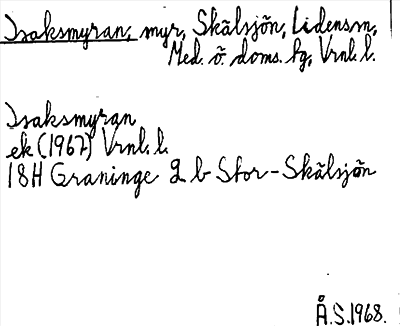 Isaksmyran, myr, Skälsjön, Lidens sn,
Med. ö. doms. fg, Vrnl. l.
Isaksmyran
ek (1967) Vrnl. l.
18H Graninge 2 b Stor-Skälsjön
Å.S. 1968.